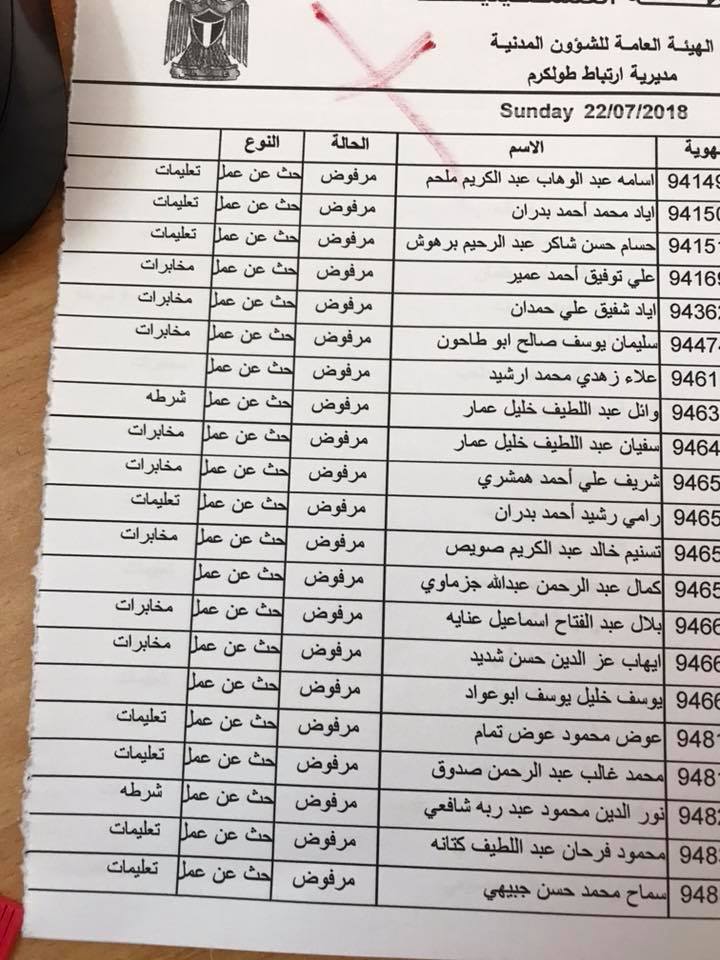 الهيئة العامة للشؤون المدنية
مديرية ارتباط طولكرم
Sunday 22/07/2018
هوية الاسم الحالة النوع
94149 اسامه عبد الوهاب عبد الكريم ملحم مرفوض حث عن عمل تعليمات
94150 اياد محمد أحمد بدران مرفوض حث عن عمل تعليمات
94151 حسام حسن شاكر عبد الرحيم برهوش مرفوض حث عن عمل تعليمات
94169 علي توفيق أحمد عمير مرفوض حث عن عمل مخابرات
94362 اياد شفيق علي حمدان مرفوض حث عن عمل مخابرات
94474 سليمان يوسف صالح ابو طاحون مرفوض حث عن عمل مخابرات
9461 علاء زهدي محمد ارشيد مرفوض حث عن عمل
9463 وائل عبد اللطيف خليل عمار مرفوض حث عن عمل شرطه
9464 سفيان عبد اللطيف خليل عمار مرفوض حث عن عمل مخابرات
9465 شريف علي أحمد همشري مرفوض حث عن عمل مخابرات
9465 رامي رشيد أحمد بدران مرفوض حث عن عمل تعليمات
9465 تسنيم خالد عبد الكريم صويص مرفوض حث عن عمل مخابرات
9465 كمال عبد الرحمن عبدالله جزماوي مرفوض حث عن عمل
9466 بلال عبد الفتاح اسماعيل عنايه مرفوض حث عن عمل مخابرات
9466 ايهاب عز الدين حسن شديد مرفوض حث عن عمل مخابرات
9466 يوسف خليل يوسف ابوعواد مرفوض حث عن عمل
9481 عوض محمود عوض تمام مرفوض حث عن عمل تعليمات
9481 محمد غالب عبد الرحمن صدوق مرفوض حث عن عمل تعليمات
9482 نور الدين محمود عبد ربه شافعي مرفوض حث عن عمل شرطه
9483 محمود فرحان عبد اللطيف كتانه مرفوض حث عن عمل تعليمات
948 سماح محمد حسن جبيهي مرفوض حث عن عمل تعليمات